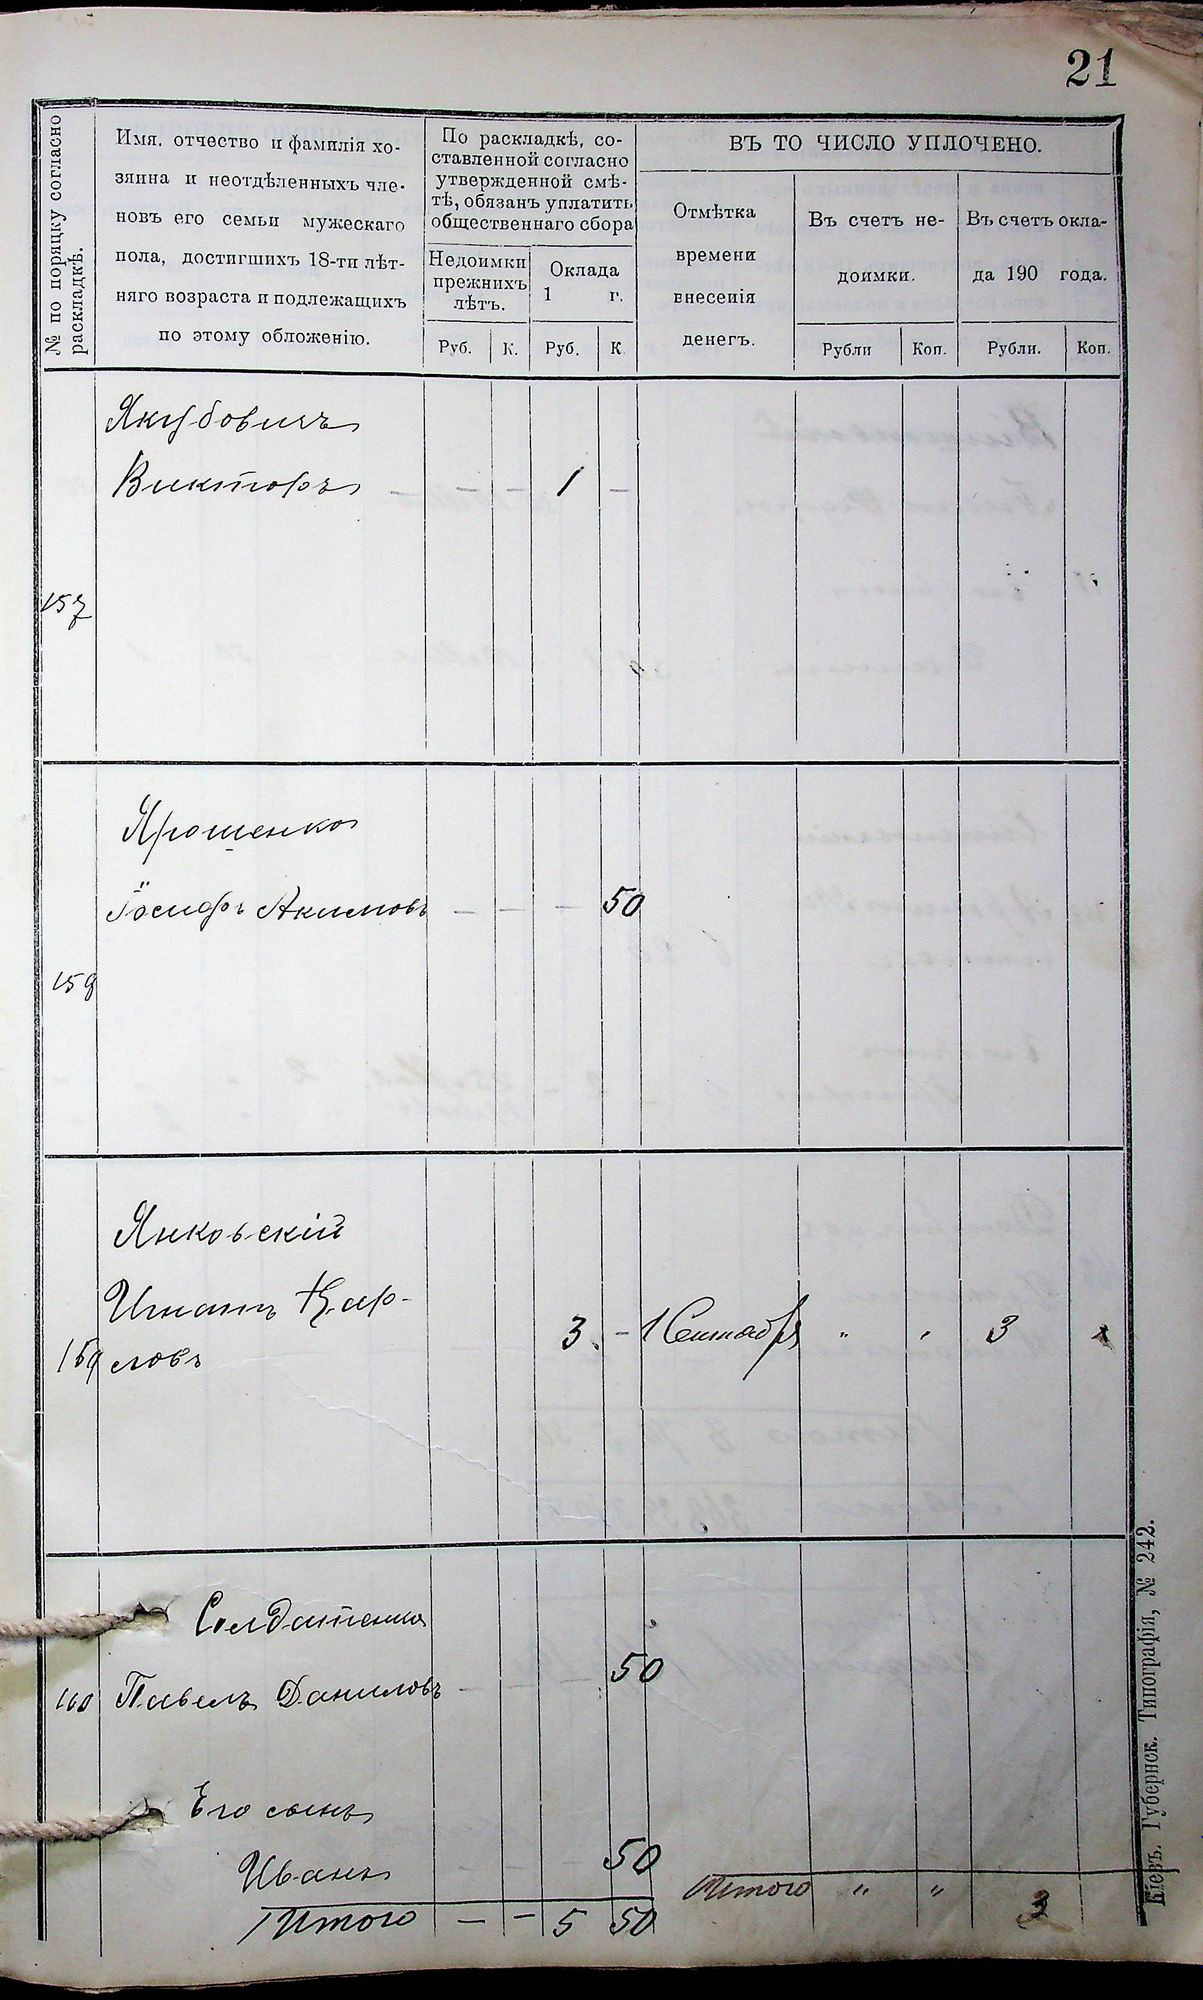 21
№ по порядку согласно
раскладкѣ.
Имя, отчество и фамилія хо-
зяина и неотдѣленныхъ чле-
новъ его семьи мужескаго
пола, достигшихъ 18-ти лѣт-
няго возраста и подлежащихъ
по этому обложенію.
По раскладкѣ, со-
ставленной согласно
утвержденной смѣ-
тѣ, обязанъ уплатить
общественнаго сбора
Недоимки
прежнихъ
лѣтъ.
Оклада
1 г.
Руб. К. Руб. К.
ВЪ ТО ЧИСЛО УПЛОЧЕНО.
Отмѣтка
времени
внесенія
денегъ.
Въ счетъ не-
доимки.
Въ счетъ окла-
да 190 года.
Рубли Коп. Рубли. Коп.
Якубовичъ
Викторъ - - - 1 -
157
Ярошенко
Іосифъ Акимовъ - - - 50
158
Янковскій
Игнатъ Кар-
159 ловъ 3. - 1 Сентября " " 3
Солдатенко
160 Павелъ Даниловъ - - - 50
Его сынъ
Иванъ - - - 50
Итого - - 5 50
Итого " " 3
Кіевъ. Губернск. Типографія, № 242.